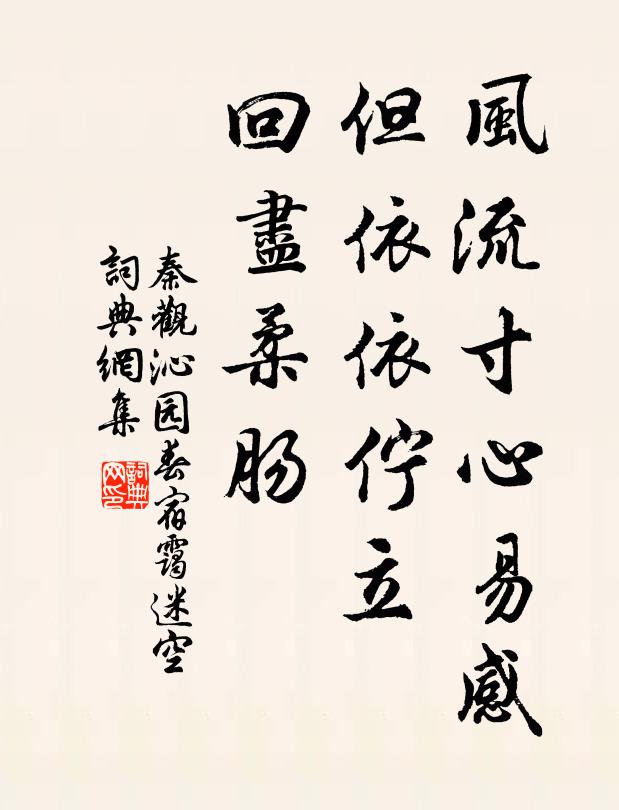 風流寸心易感
但依依佇立
回盡柔肠
秦觀沁园春宿靄迷空
詞典網集
詞典
网印